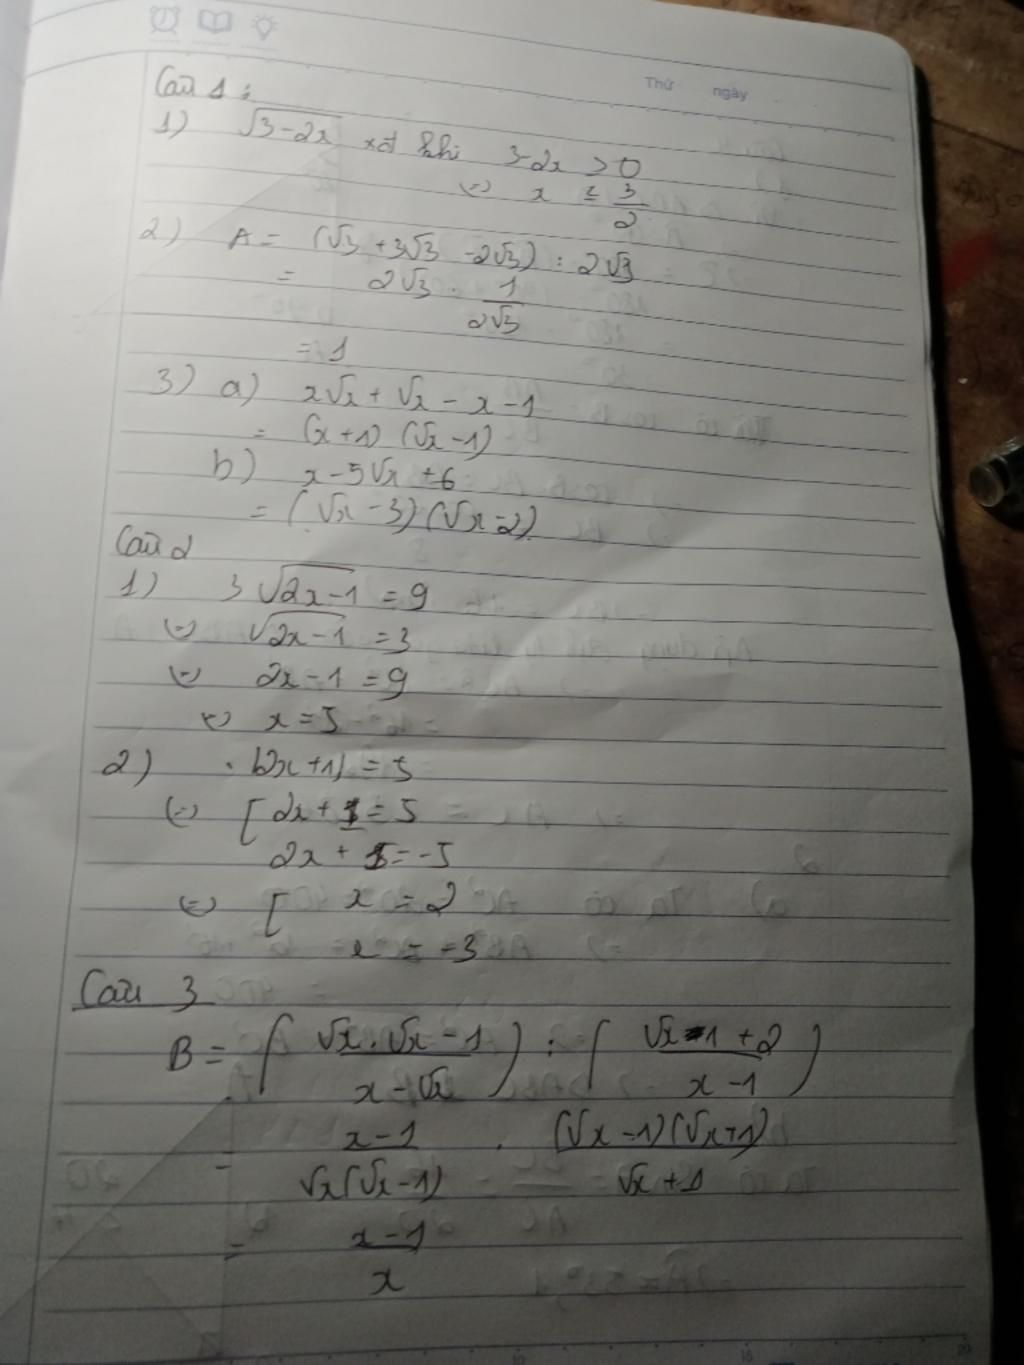 Thứ ngày
Câu 1 :
1) √3-2x xđ khi 3-2x > 0
(=) x ≤ 3/2
2) A = (√3 + 3√3 - 2√3) : 2√3
= 2√3 . 1/2√3
= 1
3) a) x√x + √x - x - 1
= (x+1) (√x - 1)
b) x - 5√x + 6
= (√x - 3) (√x - 2)
Câu 2
1) 3√2x-1 = 9
(=) √2x-1 = 3
(=) 2x-1 = 9
(=) x = 5
2) . |2x+1| = 5
(=) [ 2x + 1 = 5
2x + 1 = -5
(=) [ x = 2
x = -3
Câu 3
B = ( √x.√x - 1 / x - √x ) : ( √x - 1 + 2 / x - 1 )
= x-1 / √x(√x-1) . (√x-1)(√x+1) / √x+1
= x-1 / x